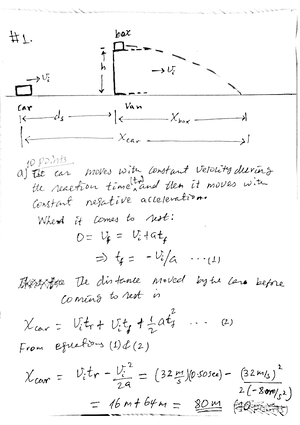 #1.
box
h
→ Vi
→ Vi
car
van
ds
Xbox
Xcar
10 points
a) The car moves with constant velocity during
the reaction time (tr) and then it moves with
constant negative acceleration.
When it comes to rest:
0 = Vf = Vi + atf
⇒ tf = -Vi/a ---- (1)
The distance moved by the car before
coming to rest is
Xcar = Vitr + Vitf + 1/2 atf² ... (2)
From equations (1) & (2)
Xcar = Vitr - Vi²/2a = (32 m/s)(0.50sec) - (32 m/s)²/2(-8.0m/s²)
= 16m + 64m = 80m